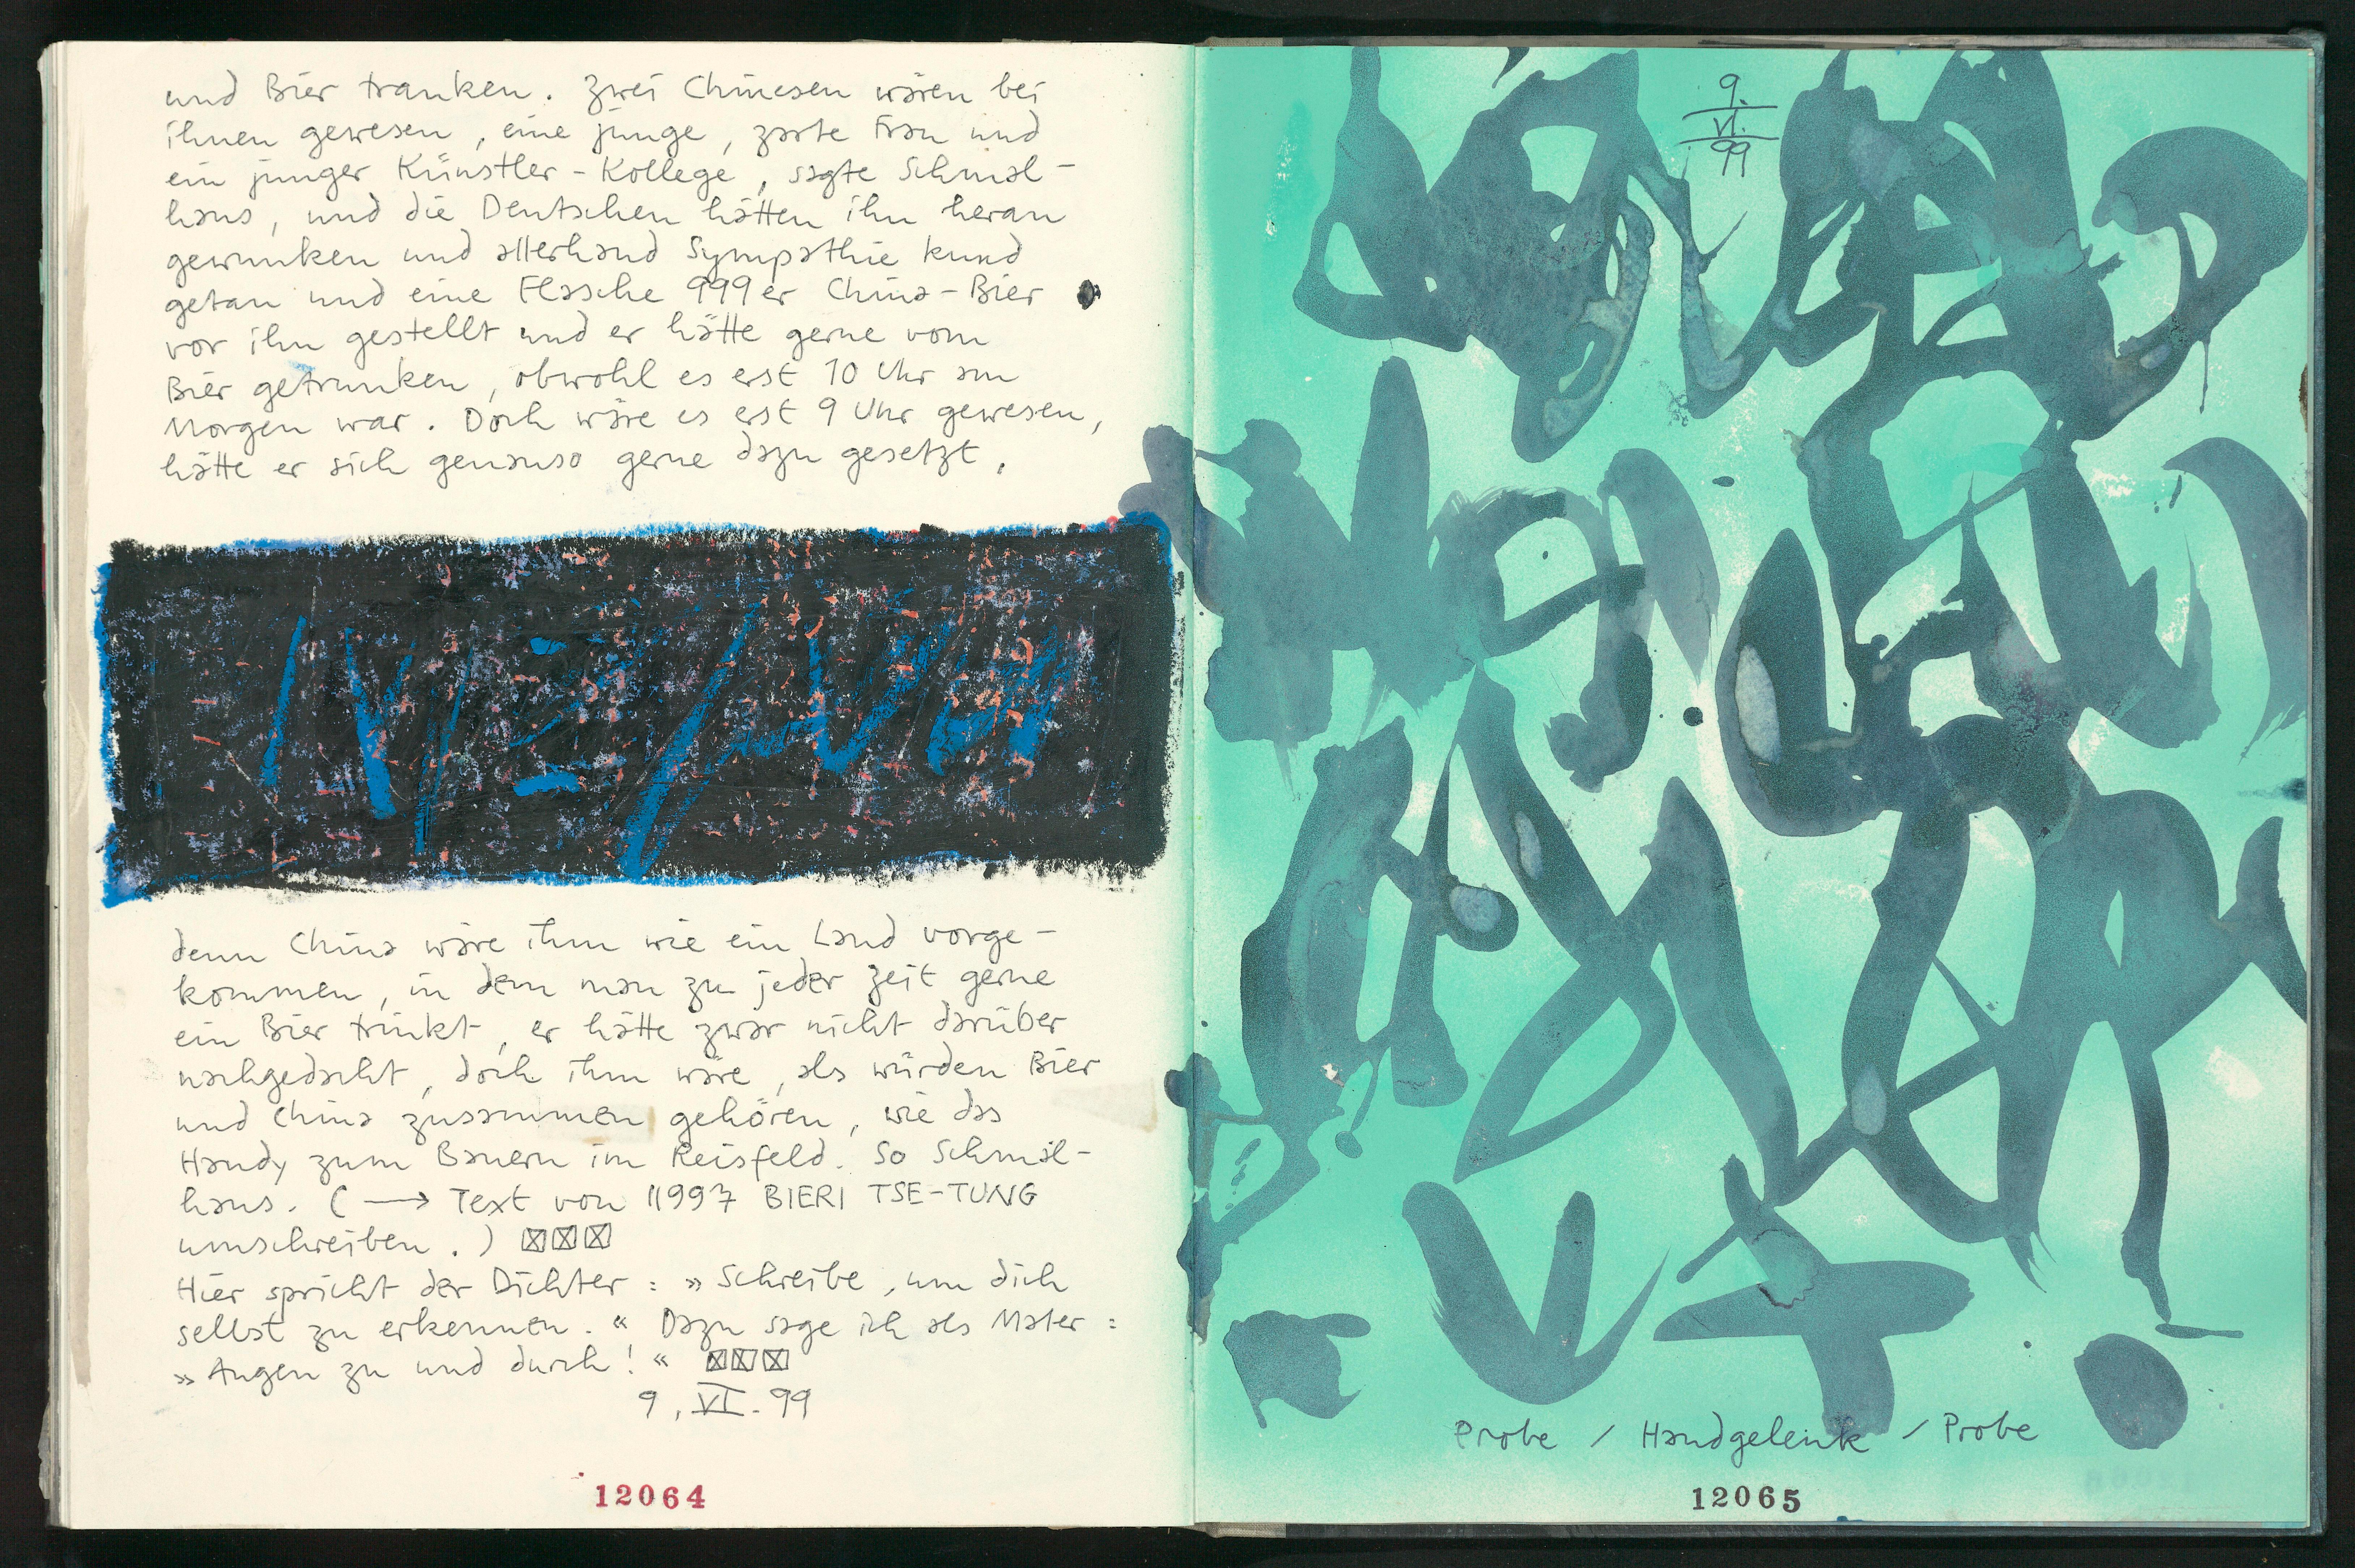 und Bier tranken. Zwei Chinesen wären bei
ihnen gewesen, eine junge, zarte Frau und
ein junger Künstler-Kollege, sagte Schmal-
haus, und die Deutschen hätten ihn heran
gewunken und allerhand Sympathie kund
getan und eine Flasche 999er China-Bier
vor ihn gestellt und er hätte gerne vom
Bier getrunken, obwohl es erst 10 Uhr am
Morgen war. Doch wäre es erst 9 Uhr gewesen,
hätte er sich genauso gerne dazu gesetzt,
denn China wäre ihm wie ein Land vorge-
kommen, in dem man zu jeder Zeit gerne
ein Bier trinkt, er hätte zwar nicht darüber
nachgedacht, doch ihm wäre, als würden Bier
und China zusammen gehören, wie das
Handy zum Bauern im Reisfeld. So Schmal-
haus. (→ Text von 11997 BIERI TSE-TUNG
umschreiben.) ☒☒☒
Hier spricht der Dichter: »Schreibe, um dich
selbst zu erkennen.« Dazu sage ich als Maler:
»Augen zu und durch!« ☒☒☒
9. VI. 99
12064
9.
VI.
99
Probe / Handgelenk / Probe
12065